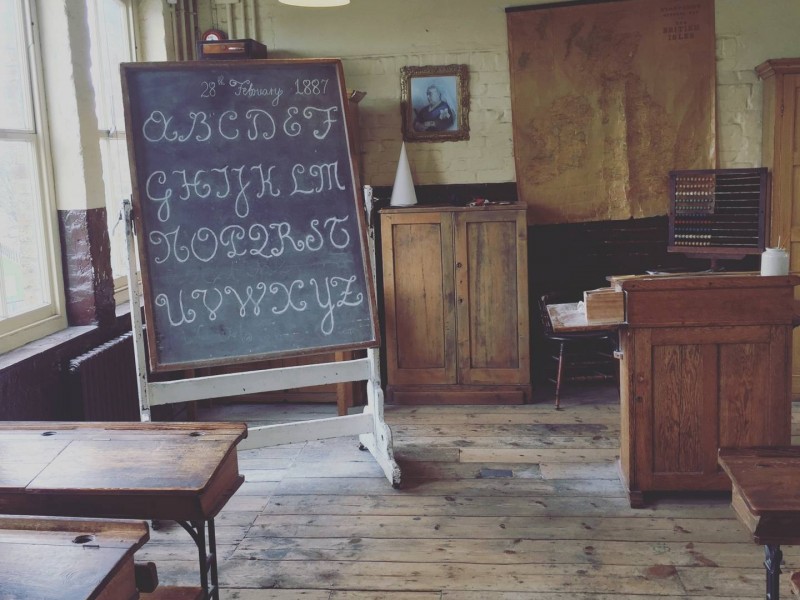 28th February 1887
A B C D E F
G H I J K L M
N O P Q R S T
U V W X Y Z
BRITISH
ISLES